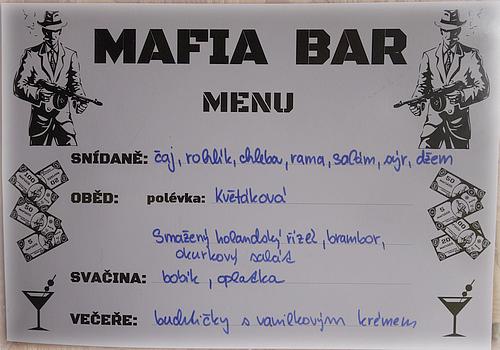 MAFIA BAR
MENU
SNÍDANĚ: čaj, rohlík, chleba, rama, salám, sýr, džem
OBĚD: polévka: Květáková
Smažený holandský řízel, brambor,
okurkový salát
SVAČINA: bobík, oplatka
VEČEŘE: buchtičky s vanilkovým krémem